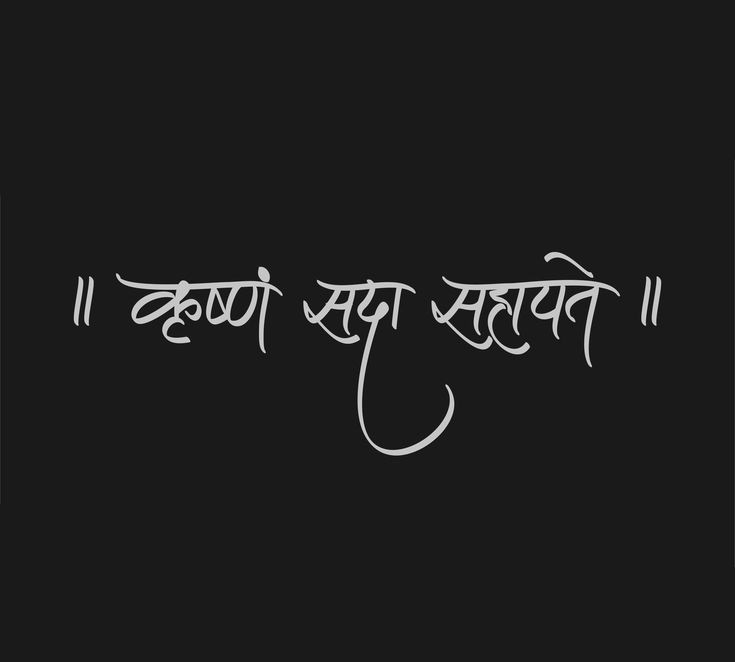 ॥ कृष्णं सदा सहायते ॥